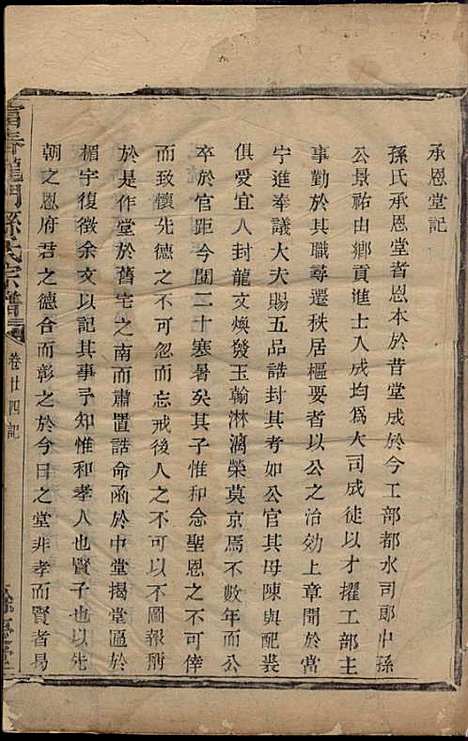 承恩堂記
孫氏承恩堂者恩本於昔堂成於今工部都水司郎中孫
公景祐由鄉貢進士入成均為大司成徒以才擢工部主
事勤於其職尋遷秩居樞要者以公之治効上章聞於當
宁進奉議大夫賜五品誥封其考如公官其母陳與配裴
俱受宜人封龍文煥發玉翰淋漓榮莫京焉不數年而公
卒於官距今閱二十寒暑矣其子惟和念聖恩之不可倖
而致懷先德之不可忽而忘戒後人之不可以不圖報所
於是作堂於舊宅之南而肅置誥命函於中堂揭堂匾於
楣宇復徵余文以記其事予知惟和孝人也賢子也以先
朝之恩府君之德合而彰之於今日之堂非孝而賢者曷
富春龍門孫氏宗譜
卷廿四記